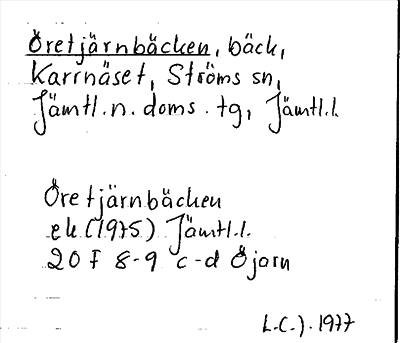 Öretjärnbäcken, bäck,
Karrnäset, Ströms sn,
Jämtl.n. doms. tg, Jämtl.l.
Öretjärnbäcken
ek.(1975) Jämtl.l.
20 F 8-9 c-d Öjarn
L.C.). 1977